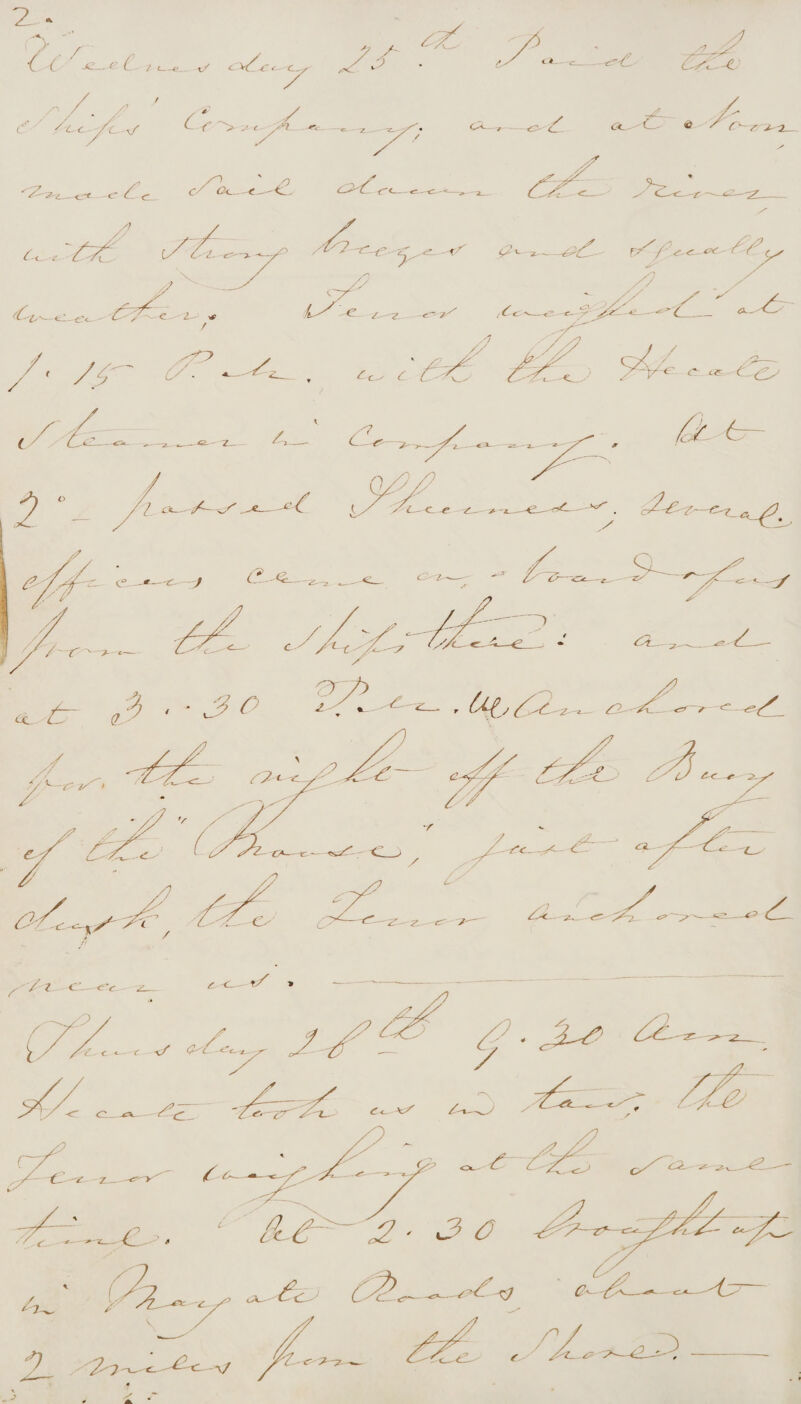 2.
Wednesday 25th Paid the
Ship's Company; and at Noon
made Sail down the river
with strong breezes and squally
weather, Terror weighed at
1.15 P.M. with the Hecate
Steamer in Company. At
2°- passed Sheerness; several
officers came on-board of us
from the ships there: and
at 3..30 P.M. we Anchored
for the night off the Buoy
of the "Mouse", just after
dusk, the Terror anchored
near us.
Thursday 26th 9.30 Am.
Hecate took us in tow. the
Terror weighing at the same
time. At 2.30 brought up
in Margate Roads about
2 miles from the Shore.